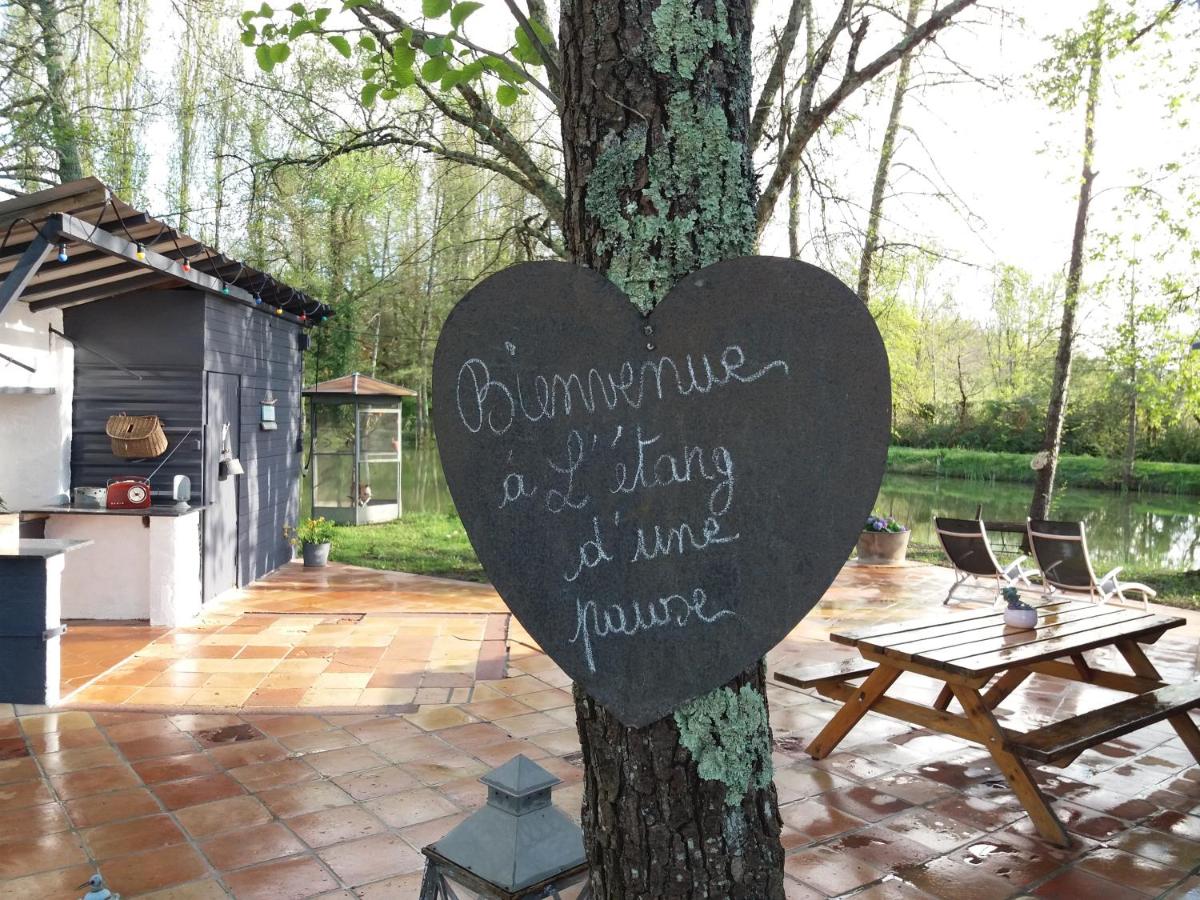 Bienvenue
á L'étang
d'une
pause